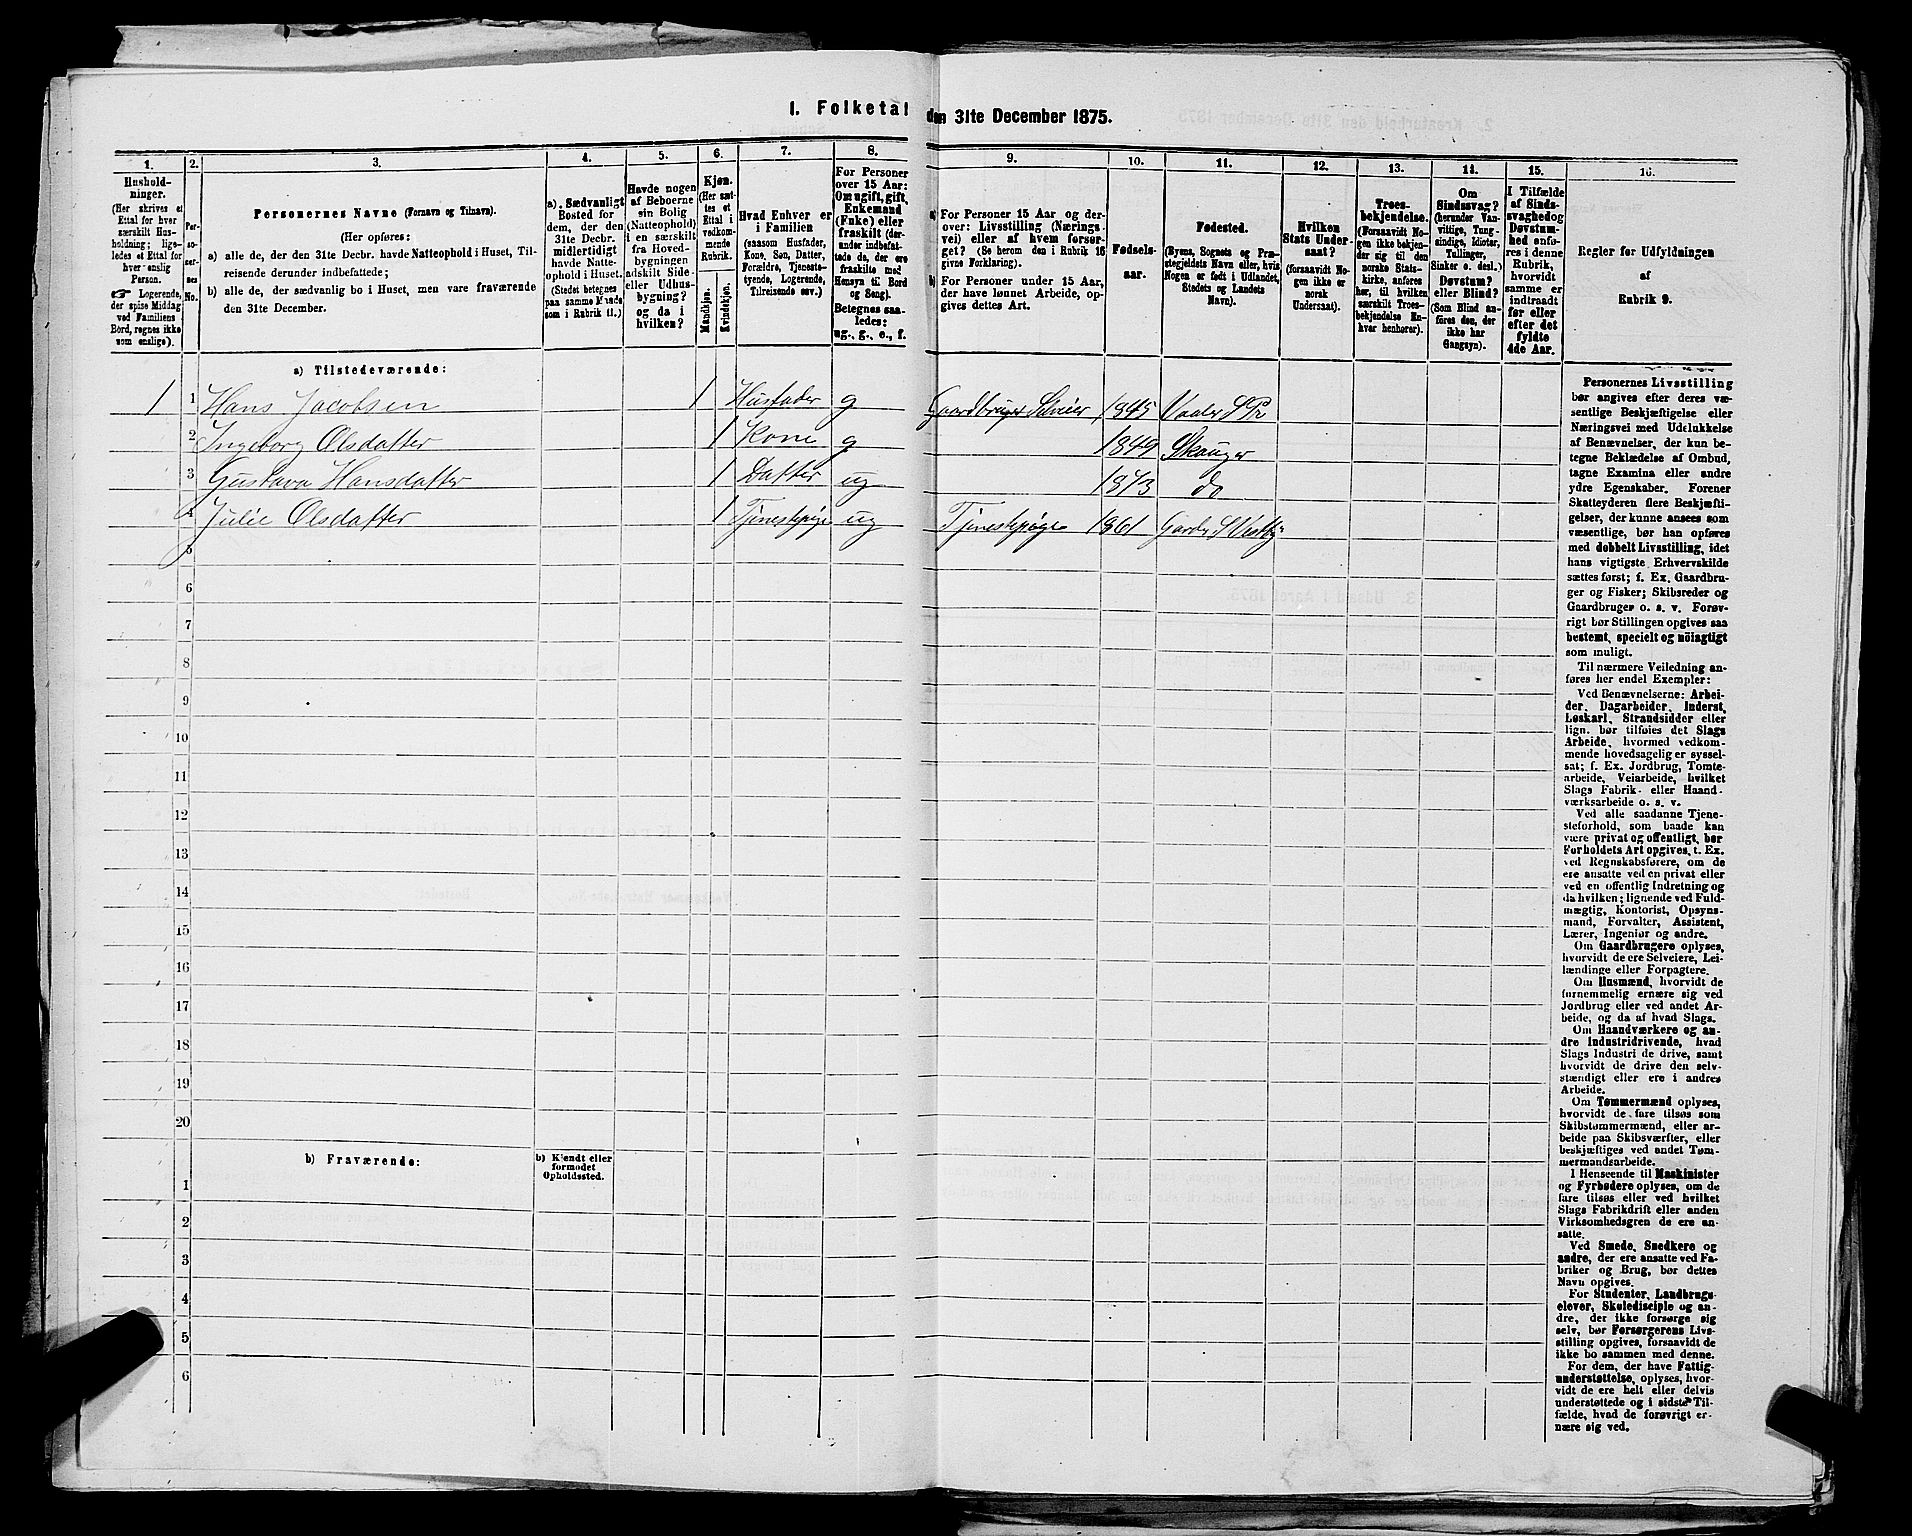 1. Folketal den 31te December 1875.
1. 2. 3. 4. 5. 6. 7. 8. 9. 10. 11. 12. 13. 14. 15. 16.
Hushold-
ninger.
(Her skrives et
Ettal for hver
særskilt Hus-
holdning; lige-
ledes et Ettal for
hver enslig
Person.
☞ Logerende,
der spise Middag
ved Familiens
Bord, regnes ikke
som enslige).
Per-
so-
ner-
nes
No.
Personernes Navne (Fornavn og Tilnavn).
(Her opføres:
a) alle de, der den 31te Decbr. havde Natteophold i Huset, Til-
reisende derunder indbefattede;
b) alle de, der sædvanlig bo i Huset, men vare fraværende
den 31te December.
a). Sædvanligt
Bosted for
dem, der den
31te Decbr.
midlertidigt
havde Natte-
ophold i Huset.
(Stedet betegnes
paa samme Maade
som i Rubrik 11.)
Havde nogen
af Beboerne
sin Bolig
(Natteophold)
i en særskilt
fra Hoved-
bygningen
adskilt Side-
eller Udhus-
bygning?
og da i
hvilken?
Kjøn.
(Her sæt-
tes et
Ettal i
vedkom-
mende
Rubrik.
Mandkjøn.
Kvindekjøn.
Hvad Enhver er
i Familien
(saasom Husfader,
Kone, Søn, Datter,
Forældre, Tjeneste-
tyende, Logerende,
Tilreisende osv.)
For Personer
over 15 Aar:
Om ugift, gift,
Enkemand
(Enke) eller
fraskilt (der-
under indbefat-
tede de, der ere
fraskilte med
Hensyn til Bord
og Seng).
Betegnes saa-
ledes:
ug., g., e., f.
a) For Personer 15 Aar og der-
over: Livsstilling (Nærings-
vei) eller af hvem forsør-
get? (Se herom den i Rubrik 16
givne Forklaring).
b) For Personer under 15 Aar,
der have lønnet Arbeide, op-
gives dettes Art.
Fødsels-
aar.
Fødested.
(Byens, Sognets og Præ-
stegjeldets Navn eller, hvis
Nogen er født i Udlandet,
Stedets og Landets
Navn).
Hvilken
Stats Under-
saat?
(forsaavidt No-
gen ikke er
norsk
Undersaat).
Troes-
bekjendelse.
(Forsaavidt No-
gen ikke bekjen-
der sig til den
norske Stats-
kirke, anføres
her, til hvilken
særskilt Troes-
bekjendelse En-
hver henhører).
Om
Sindssvag?
(herunder Van-
vittige, Tung-
sindige, Idioter,
Tullinger,
Sinker o. desl.)
Døvstum?
eller Blind?
(Som Blind an-
føres den, der
ikke har
Gangsyn).
I Tilfælde
af Sinds-
svaghed og
Døvstum-
hed anfø-
res i denne
Rubrik,
hvorvidt
samme er
indtraadt
før eller
efter det
fyldte
4de Aar.
Regler for Udfyldningen
af
Rubrik 9.
a) Tilstedeværende:
1 1 Hans Jacobsen 1 Husfader g Gaardbruger Selveier 1845 Vaaler S Pr
2 Ingeborg Olsdatter 1 Kone g 1849 Skauger
3 Gustava Hansdatter 1 Datter ug 1873 do
4 Julie Olsdatter 1 Tjenestepige ug Tjenestepige 1861 Garder S Vestby
5
6
7
8
9
10
11
12
13
14
15
16
17
18
19
20
b) Fraværende:
b) Kjendt eller
formodet
Opholdssted.
1
2
3
4
5
6
Personernes Livsstilling
bør angives efter deres væ-
sentlige Beskjæftigelse eller
Næringsvei med Udelukkelse
af Benævnelser, der kun be-
tegne Beklædelse af Ombud,
tagne Examina eller andre
ydre Egenskaber. Forener
Skatteyderen flere Beskjæfti-
gelser, der kunne ansees som
væsentlige, bør han opføres
med dobbelt Livsstilling, idet
hans vigtigste Erhvervskilde
sættes først; f. Ex. Gaardbru-
ger og Fisker; Skibsreder og
Gaardbruger o. s. v. Forøv-
rigt bør Stillingen opgives saa
bestemt, specielt og nöiagtigt
som muligt.
Til nærmere Veiledning an-
føres her endel Exempler:
Ved Benævnelserne: Arbei-
der, Dagarbeider, Inderst,
Løskarl, Strandsidder eller
lign. bør tilføies det Slags
Arbeide, hvormed vedkom-
mende hovedsagelig er syssel-
sat; f. Ex. Jordbrug, Tomte-
arbeide, Veiarbeide, hvilket
Slags Fabrik- eller Haand-
værksarbeide o. s. v.
Ved alle saadanne Tjene-
steforhold, som baade kan
være privat og offentligt, bør
Forholdets Art opgives, t. Ex.
ved Regnskabsførere, om de
ere ansatte ved en privat eller
ved en offentlig Indretning og
da hvilken; lignende ved Fuld-
mægtig, Kontorist, Opsyns-
mand, Forvalter, Assistent,
Lærer, Ingeniør og andre.
Om Gaardbrugere oplyses,
hvorvidt de ere Selveiere, Lei-
lændinge eller Forpagtere.
Om Husmænd, hvorvidt de
fornemmelig ernære sig ved
Jordbrug eller ved andet Ar-
beide, og da af hvad Slags.
Om Haandværkere og an-
dre Industridrivende, hvad
Slags Industri de drive, samt
hvorvidt de drive den selv-
stændigt eller ere i andres
Arbeide.
Om Tømmermænd oplyses,
hvorvidt de fare tilsøs som
Skibstømmermænd, eller ar-
beide paa Skibsværfter, eller
beskjæftiges ved andet Tøm-
mermandsarbeide.
I Henseende til Maskinister
og Fyrbødere oplyses, om de
fare tilsøs eller ved hvilket
Slags Fabrikdrift eller anden
Virksomhedsgren de ere an-
satte.
Ved Smede, Snedkere og
andre, der ere ansatte ved Fa-
briker og Brug, bør dettes
Navn opgives.
For Studenter, Landbrugs-
elever, Skoledisciple og an-
dre, der ikke forsørge sig
selv, bør Forsørgerens Livs-
stilling opgives, forsaavidt de
ikke bo sammen med denne.
For dem, der have Fattig-
understøttelse, oplyses, hvor-
vidt de ere helt eller delvis
understøttede og i sidste Til-
fælde, hvad de forøvrigt er-
nære sig ved.